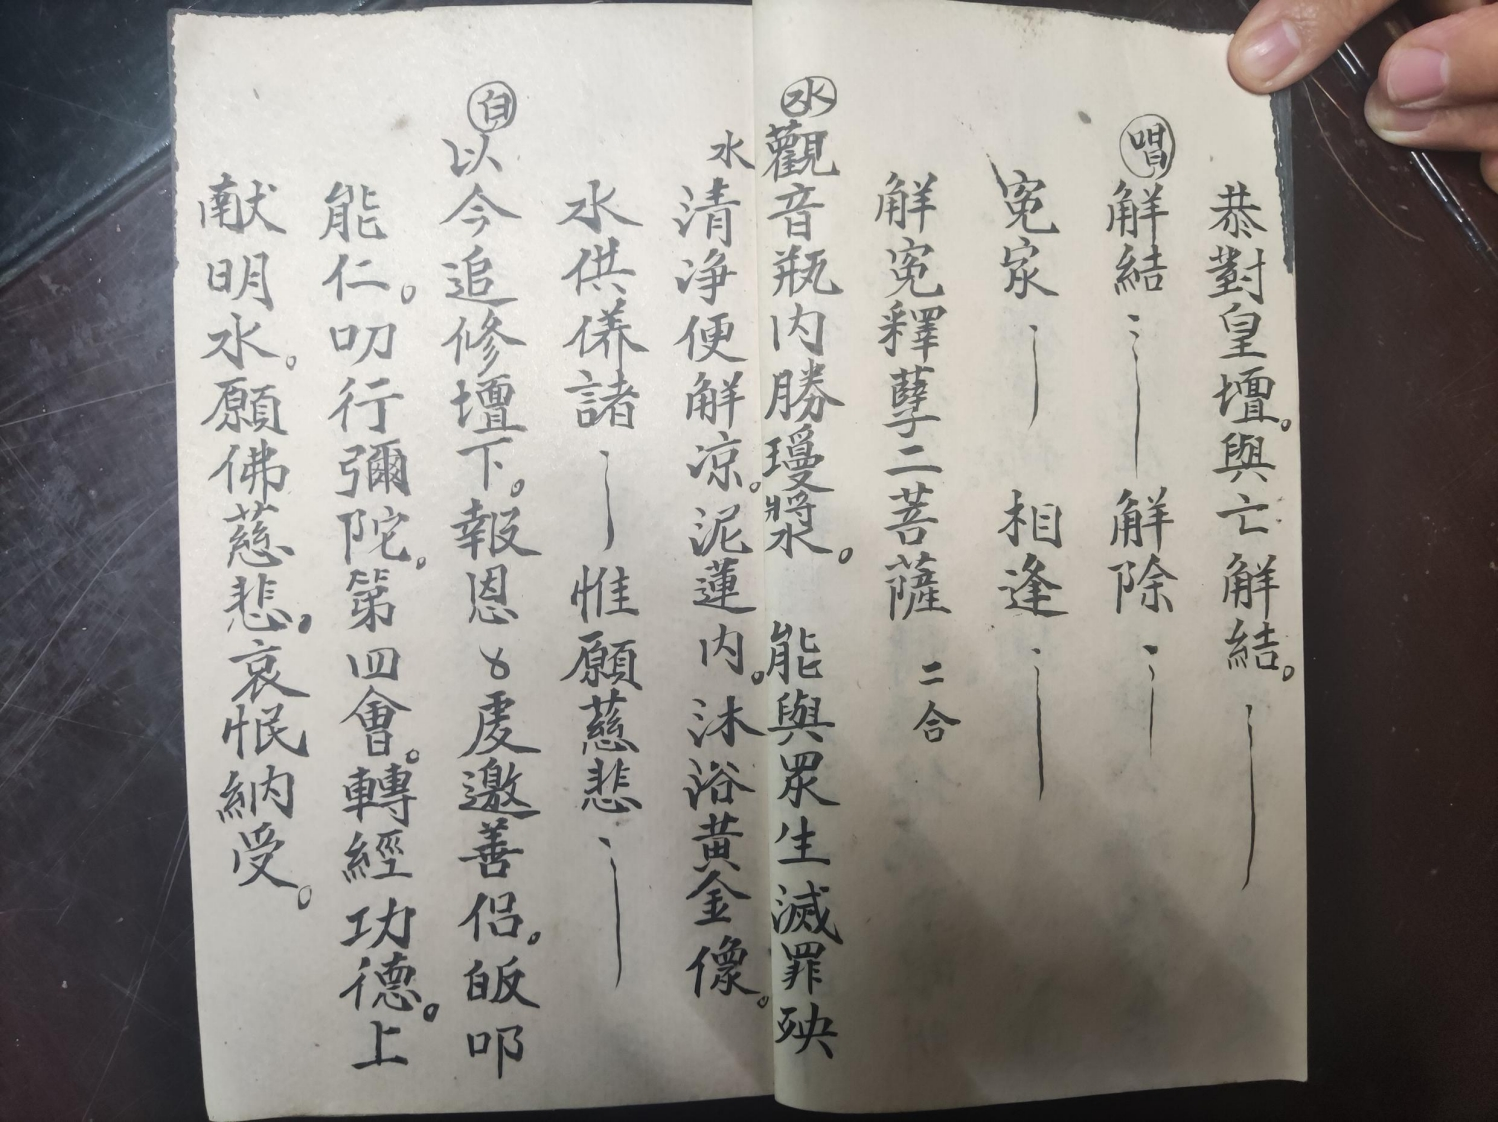 恭對皇壇。與亡解結。
唱 解結 解除
寃家 相逢
解寃釋孽二菩薩 二合
水 觀音瓶內勝瓊漿。能與眾生滅罪殃
水清淨便解凉。泥蓮內。沐浴黃金像。
水供养諸 惟願慈悲
白 以今追修壇下。報恩 處邀善侣。皈叩
能仁。叨行彌陀。第四會。轉經功德。上
献明水。願佛慈悲。哀怋納受。